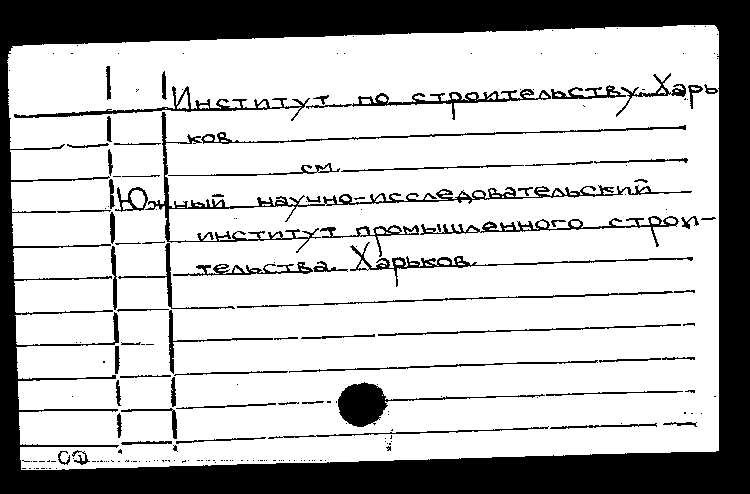 Институт по строительству. Харь
ков.
см.
Южный научно-исследовательский
институт промышленного строи-
тельства. Харьков.